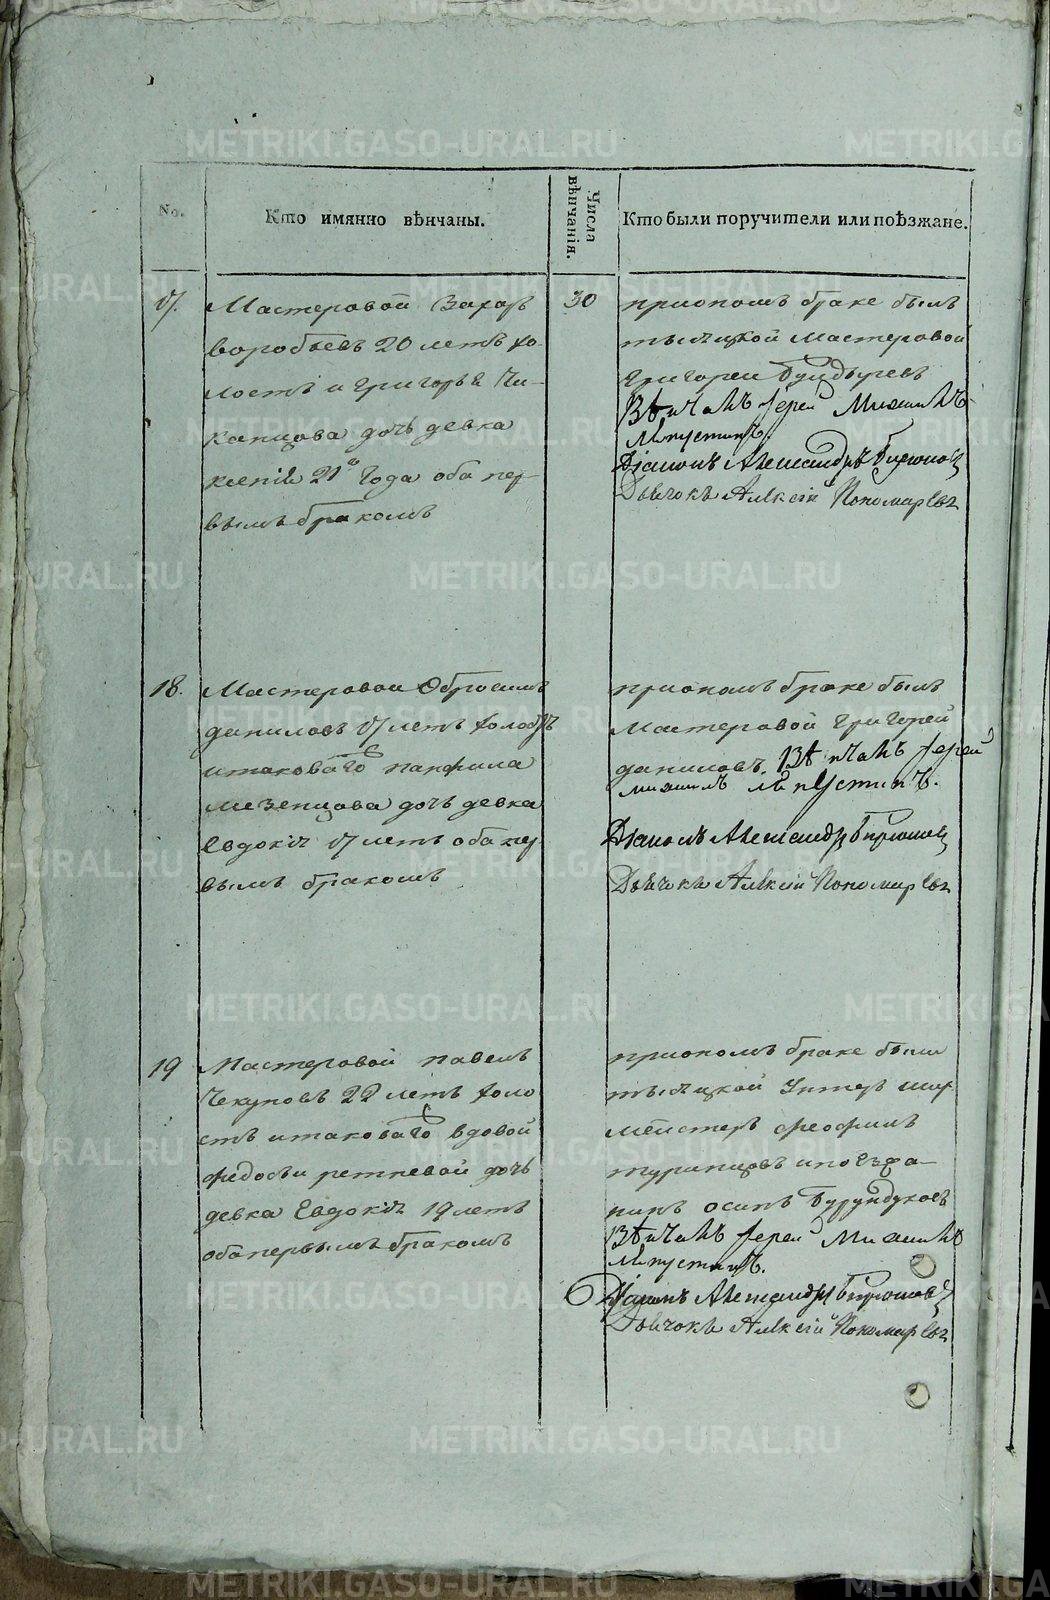 No.
Кто имянно вѣнчаны.
Числа вѣнчанія.
Кто были поручители или поѣзжане.
17.
Мастеровой Захаръ
воробьевъ 20 летъ хо-
лостъ и григорья Чи-
канцова дочь девка
ксенiя 21го года оба пер-
вымъ бракомъ
30
приономъ браке былъ
тысяцкой мастеровой
григореи
Вѣнчалъ Iерей Михаилъ
Дiаконъ Александръ Бирюков
Дьячокъ Алексiй Пономаревъ
18.
Мастеровои
даниловъ 17 летъ холостъ
итаковаго панфила
мезенцова дочь девка
Евдокiя 17 летъ оба пер
вымъ бракомъ
приономъ браке былъ
мастеровой григорей
даниловъ. Вѣнчалъ Iерей
михаилъ
Дiаконъ Александръ Бирюков
Дьячокъ Алексiй Пономаревъ
19
Мастеровой павелъ
Чекуновъ 22 летъ холо
стъ итаковаго вдовой
федосьи ретневой дочь
девка Евдокiя 19 летъ
оба первымъ бракомъ
приономъ браке были
тысяцкой Унтеръ шиф
мейстеръ феофилъ
туринцовъ ипоезжа-
нинъ осипъ Бурундуковъ
Вѣнчалъ Iерей Михаилъ
Дiаконъ Александръ Бирюков
Дьячокъ Алексiй Пономаревъ
METRIKI.GASO-URAL.RU